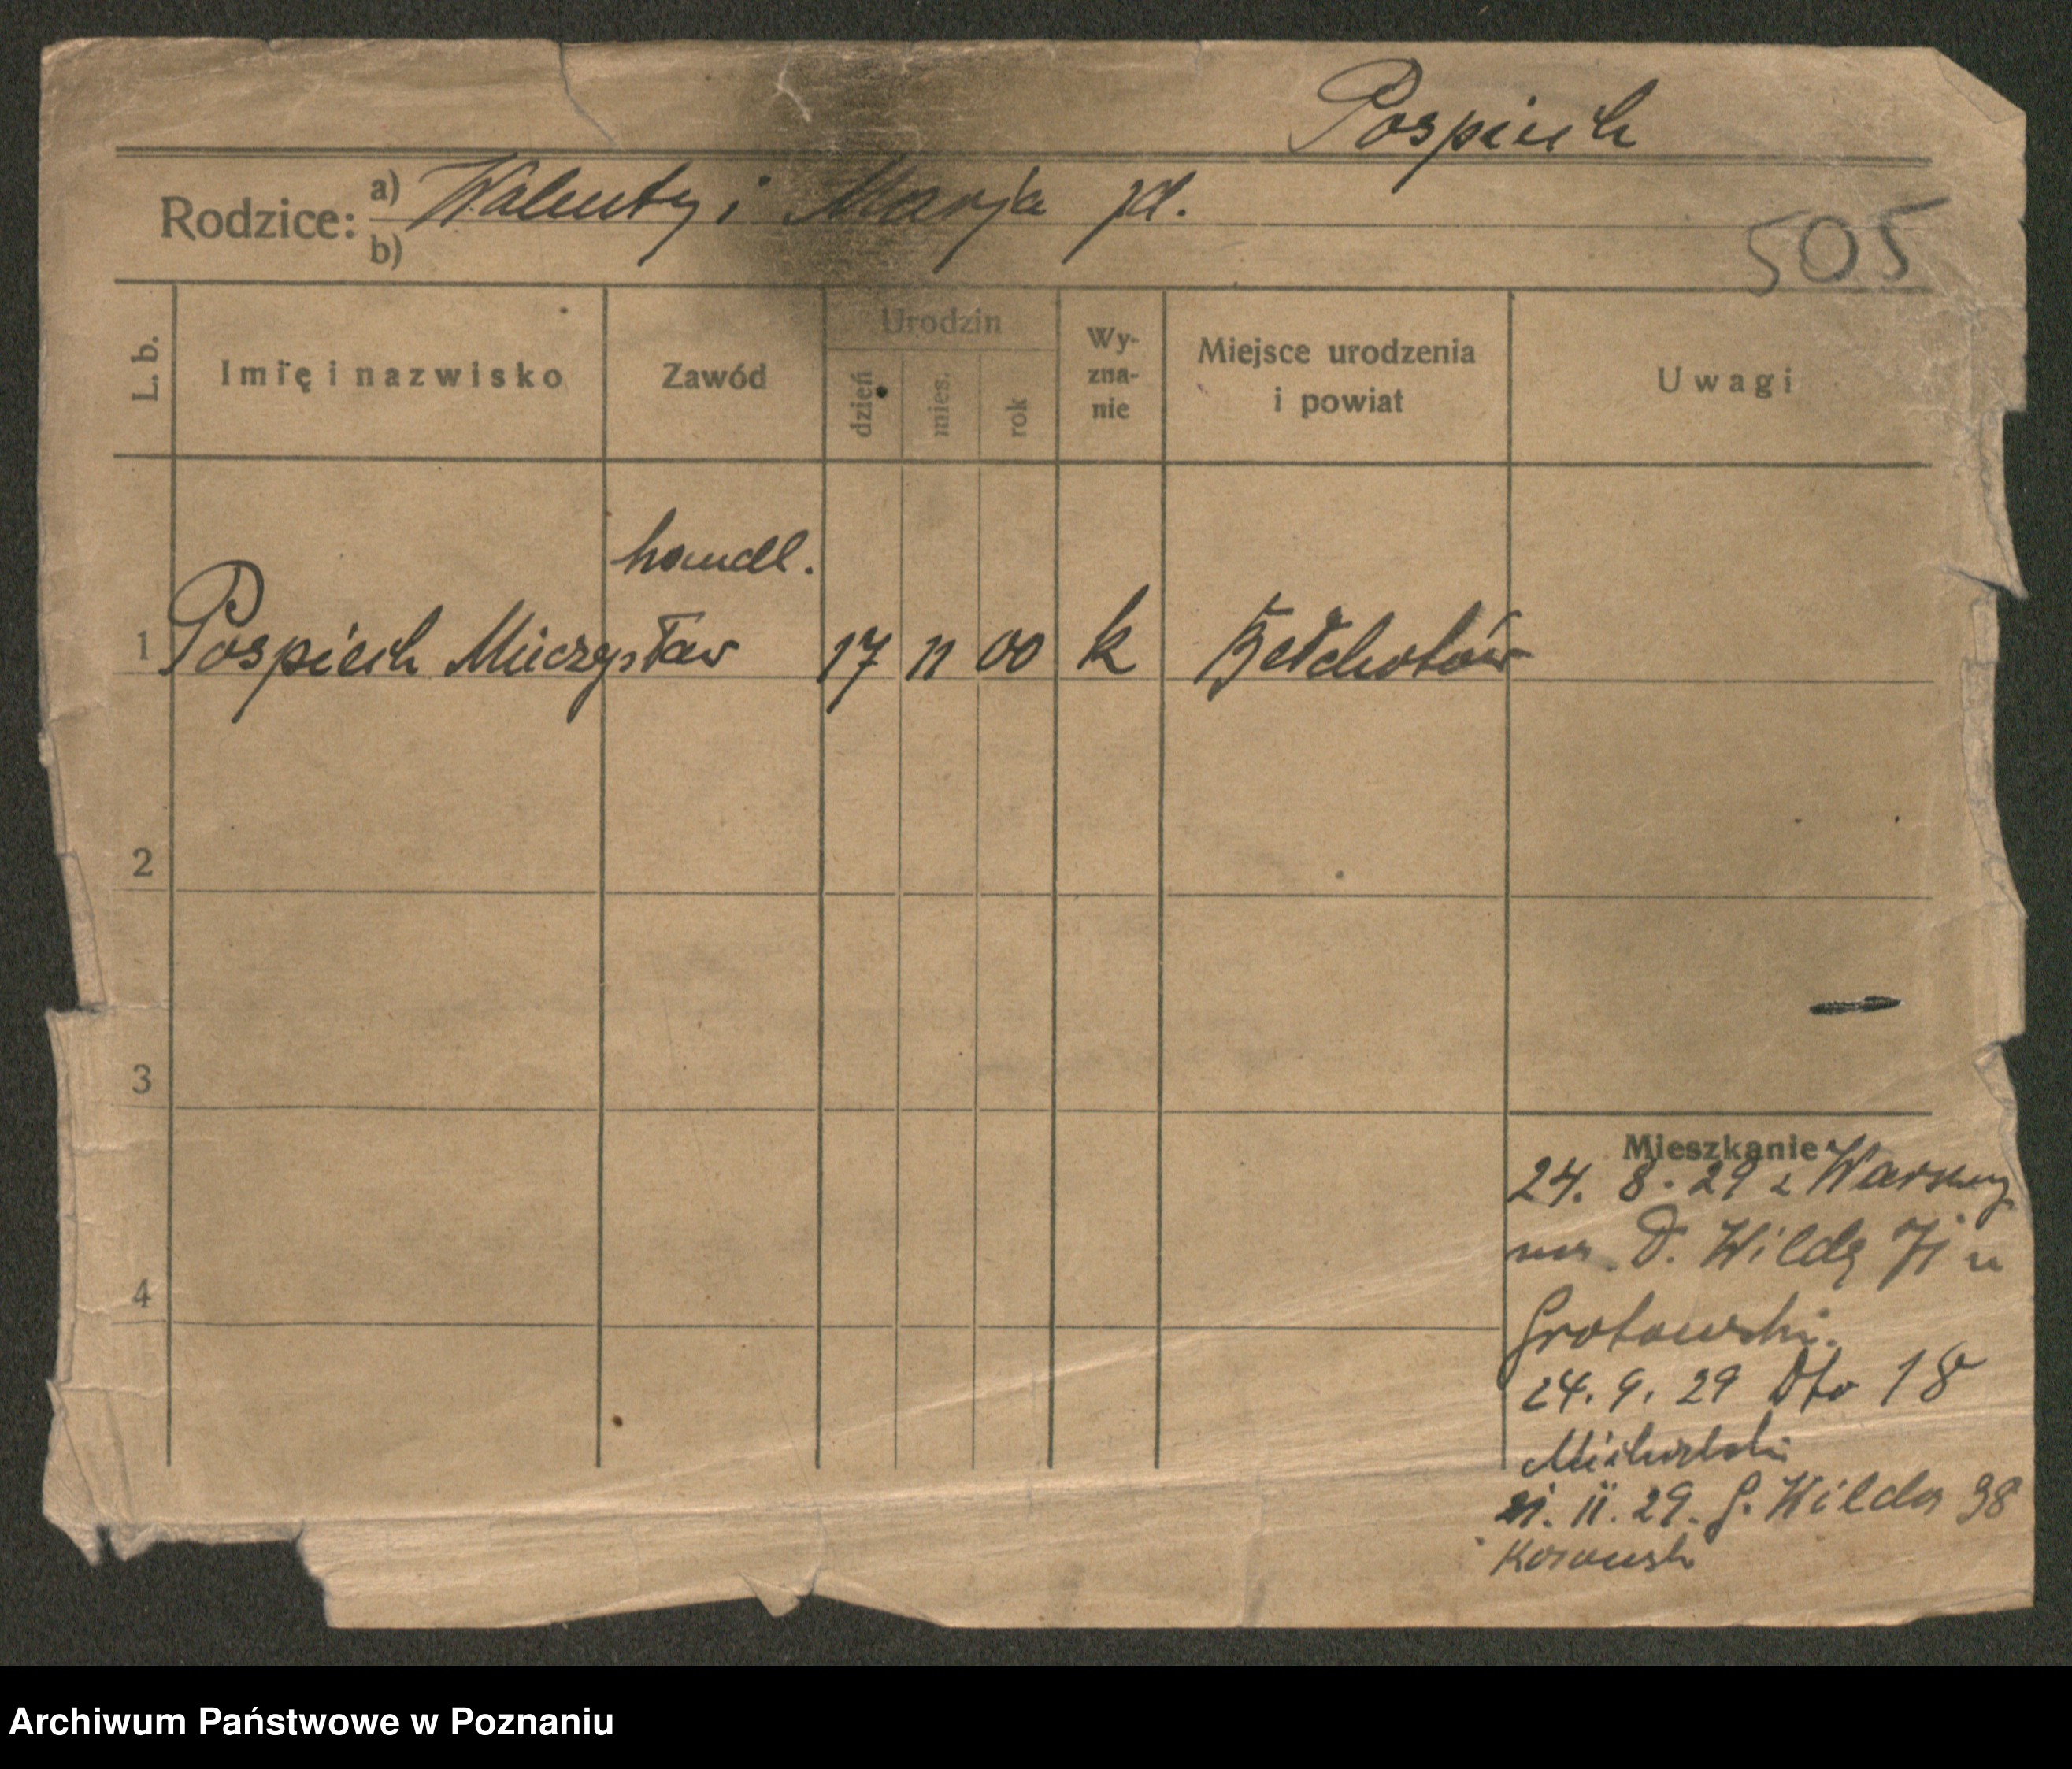 Pospiech
Rodzice: a) Walenty i Marja jd.
b)
505
L. b.
Imię i nazwisko
Zawód
Urodzin
dzień
mies.
rok
Wy-
zna-
nie
Miejsce urodzenia
i powiat
Uwagi
handl.
1 Pospiech Mieczysław 17 11 00 k Bełchatów
2
3
4
Mieszkanie
24. 8. 29 z Warszawy
na D. Wildę 71 u
Grotowski.
24. 9. 29 Dto 18
Michalski
21. 11. 29. G. Wilda 98
Archiwum Państwowe w Poznaniu